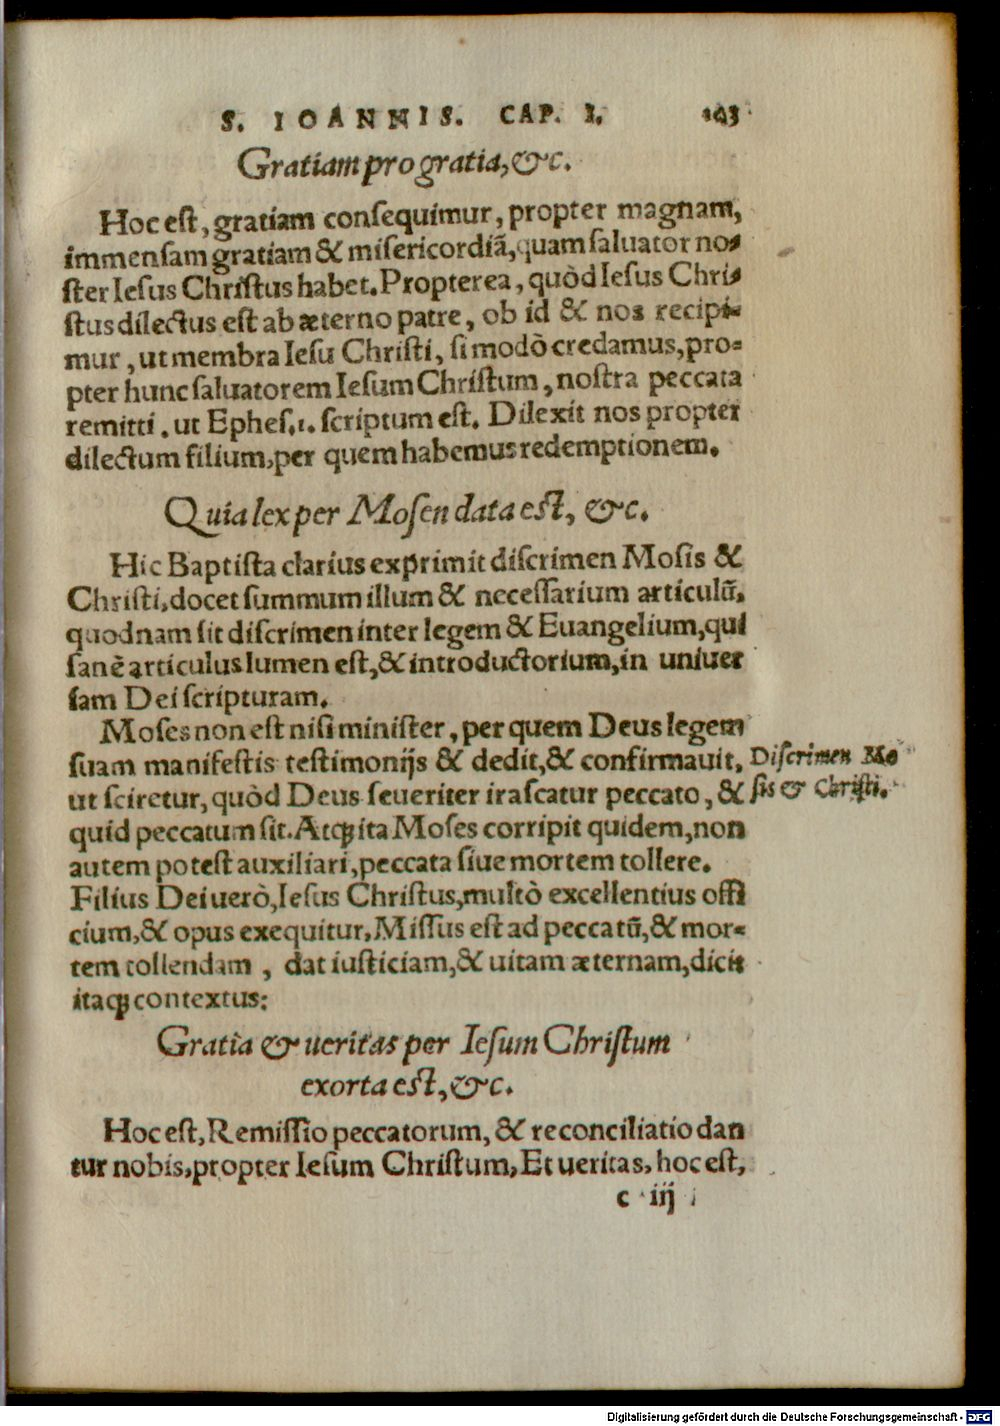 S. IOANNIS. CAP. I. 143
Gratiam pro gratia, &c.
Hoc est, gratiam consequimur, propter magnam,
immensam gratiam & misericordiā, quam saluator no-
ster Iesus Christus habet. Propterea, quòd Iesus Chri-
stus dilectus est ab æterno patre, ob id & nos recipi-
mur, ut membra Iesu Christi, si modò credamus, pro-
pter hunc saluatorem Iesum Christum, nostra peccata
remitti. ut Ephes. 1. scriptum est. Dilexit nos propter
dilectum filium, per quem habemus redemptionem.
Quia lex per Mosen data est, &c.
Hic Baptista clarius exprimit discrimen Mosis &
Christi, docet summum illum & necessarium articulū,
quodnam sit discrimen inter legem & Euangelium, qui
sanè articulus lumen est, & introductorium, in univer
sam Dei scripturam.
Moses non est nisi minister, per quem Deus legem
suam manifestis testimonijs & dedit, & confirmauit,
ut sciretur, quòd Deus seueriter irascatur peccato, &
quid peccatum sit. Atq; ita Moses corripit quidem, non
autem potest auxiliari, peccata siue mortem tollere.
Filius Dei uerò, Iesus Christus, multò excellentius offi
cium, & opus exequitur, Missus est ad peccatū, & mor-
tem tollendam, dat iusticiam, & uitam æternam, dicit
itaq; contextus:
Discrimen Mo
sis & Christi.
Gratia & ueritas per Iesum Christum
exorta est, &c.
Hoc est, Remissio peccatorum, & reconciliatio dan
tur nobis, propter Iesum Christum, Et ueritas, hoc est,
c iij
Digitalisierung gefördert durch die Deutsche Forschungsgemeinschaft - DFG